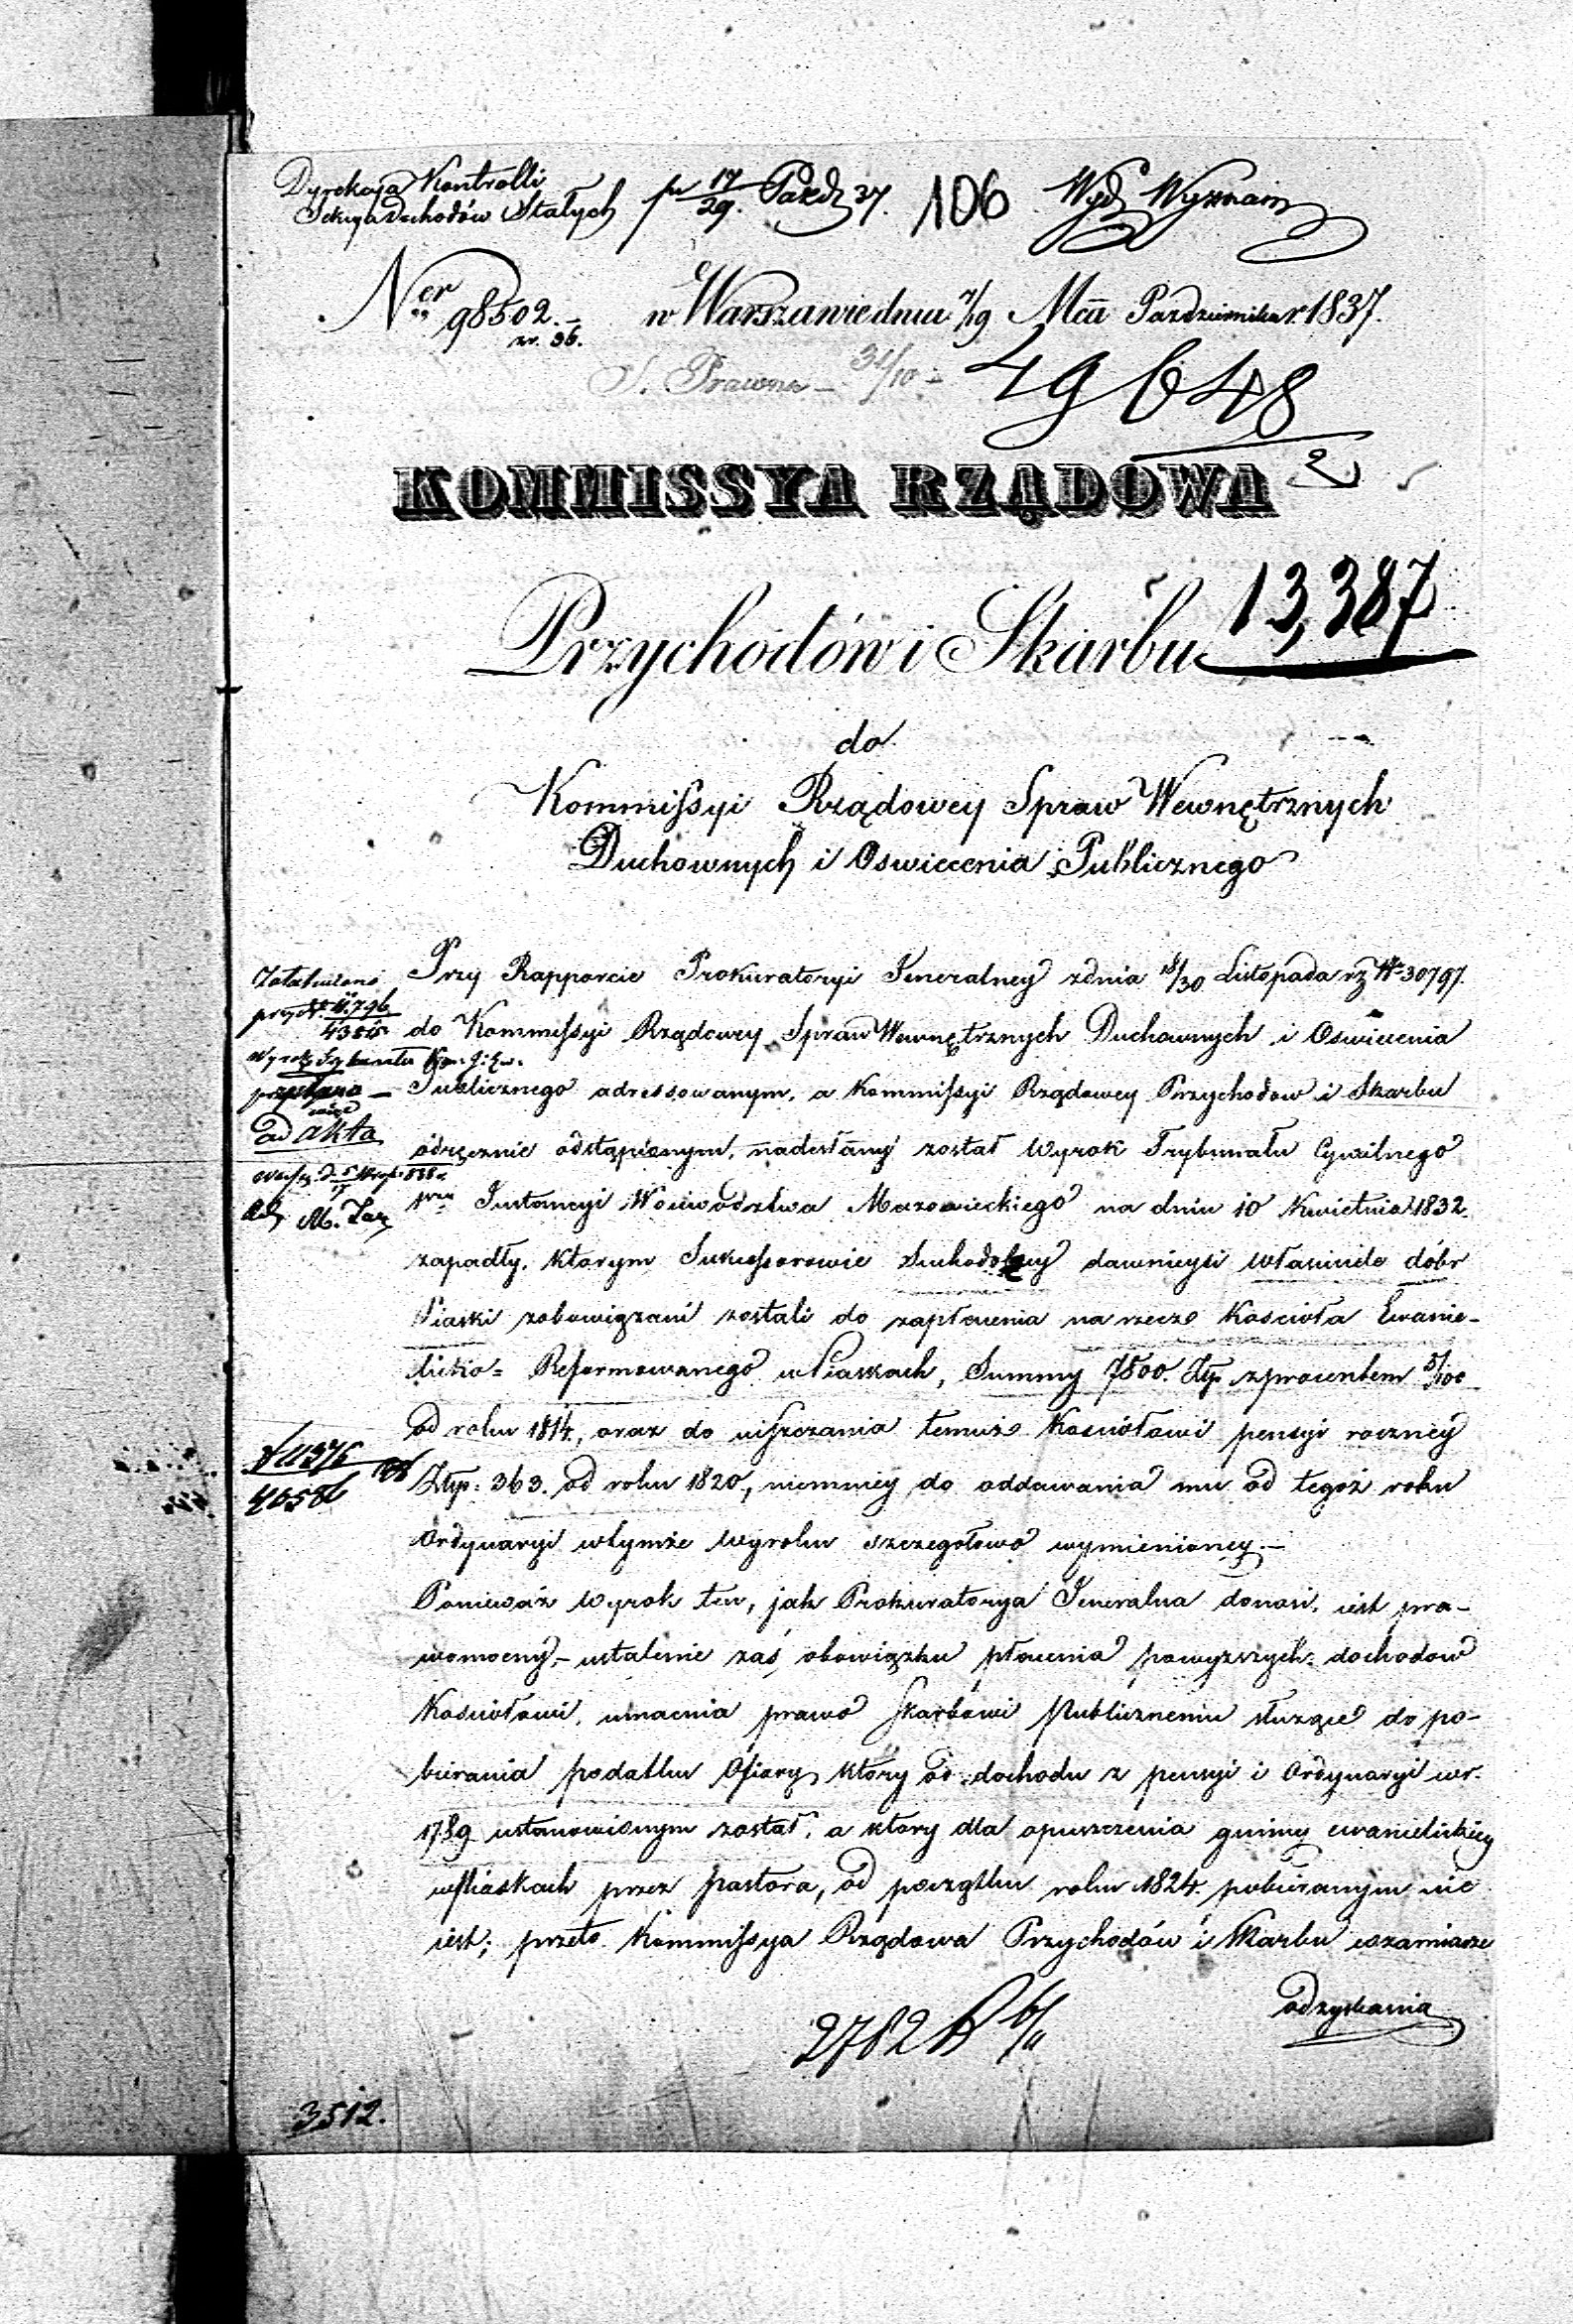 Dyrekcya Kontrolli
Sekcya Dochodów Stałych
pr 17/29. Paźdz 37.
106
Wydz Wyznań
Ner 98502.
w Warszawie dnia 7/19 Mca Pazdziernika r. 1837.
S. Prawna — 31/10
49648
2
KOMMISSYA RZĄDOWA
Przychodów i Skarbu
13,387
do
Kommissyi Rządowey Spraw Wewnętrznych
Duchownych i Oswiecenia Publicznego
Przy Rapporcie Prokuratoryi Jeneralney z dnia 18/30 Listopada rz No 30797.
do Kommissyi Rządowey Spraw Wewnętrznych Duchownych i Oswiecenia
Publicznego adressowanym, a Kommissyi Rządowey Przychodow i Skarbu
odręcznie odstąpionym, nadesłany został Wyrok Trybunału Cywilnego
1szey Instancyi Woiewództwa Mazowieckiego na dniu 10 Kwietnia 1832.
zapadły, ktorym Sukcessorowie Suchodolscy dawnieysi właściciele dóbr
Piaski zobowiązani zostali do zapłacenia na rzecz Kościoła Ewanie-
licko= Reformowanego w Piaskach, Summy 7800. Złp. z procentem 5/100
od roku 1814, oraz do uiszczania temuż Kościołowi pensyi roczney
Złp: 363. od roku 1820, niemniey do oddawania mu od tegoż roku
Ordynaryi w tymże Wyroku szczegołowo wymienioney.—
Ponieważ Wyrok ten, jak Prokuratorya Jeneralna donosi, iest pra-
womocny,— ustalenie zaś obowiązku płacenia powyzszych dochodow
Kościołowi, umacnia prawo Skarbowi Publicznemu służące do po-
bierania podatku Ofiary, ktory od dochodu z pensyi i Ordynaryi w r.
1789 ustanowionym został, a ktory dla opuszczenia gminy ewanielickiey
w Piaskach przez Pastora, od początku roku 1824 pobieranym nie
iest; przeto Kommissya Rządowa Przychodów i Skarbu w zamiarze
odzyskania
Załatwiono
przy No 11.796
Wyrok Trybunału
ad akta
11376
4058
2782
3512.